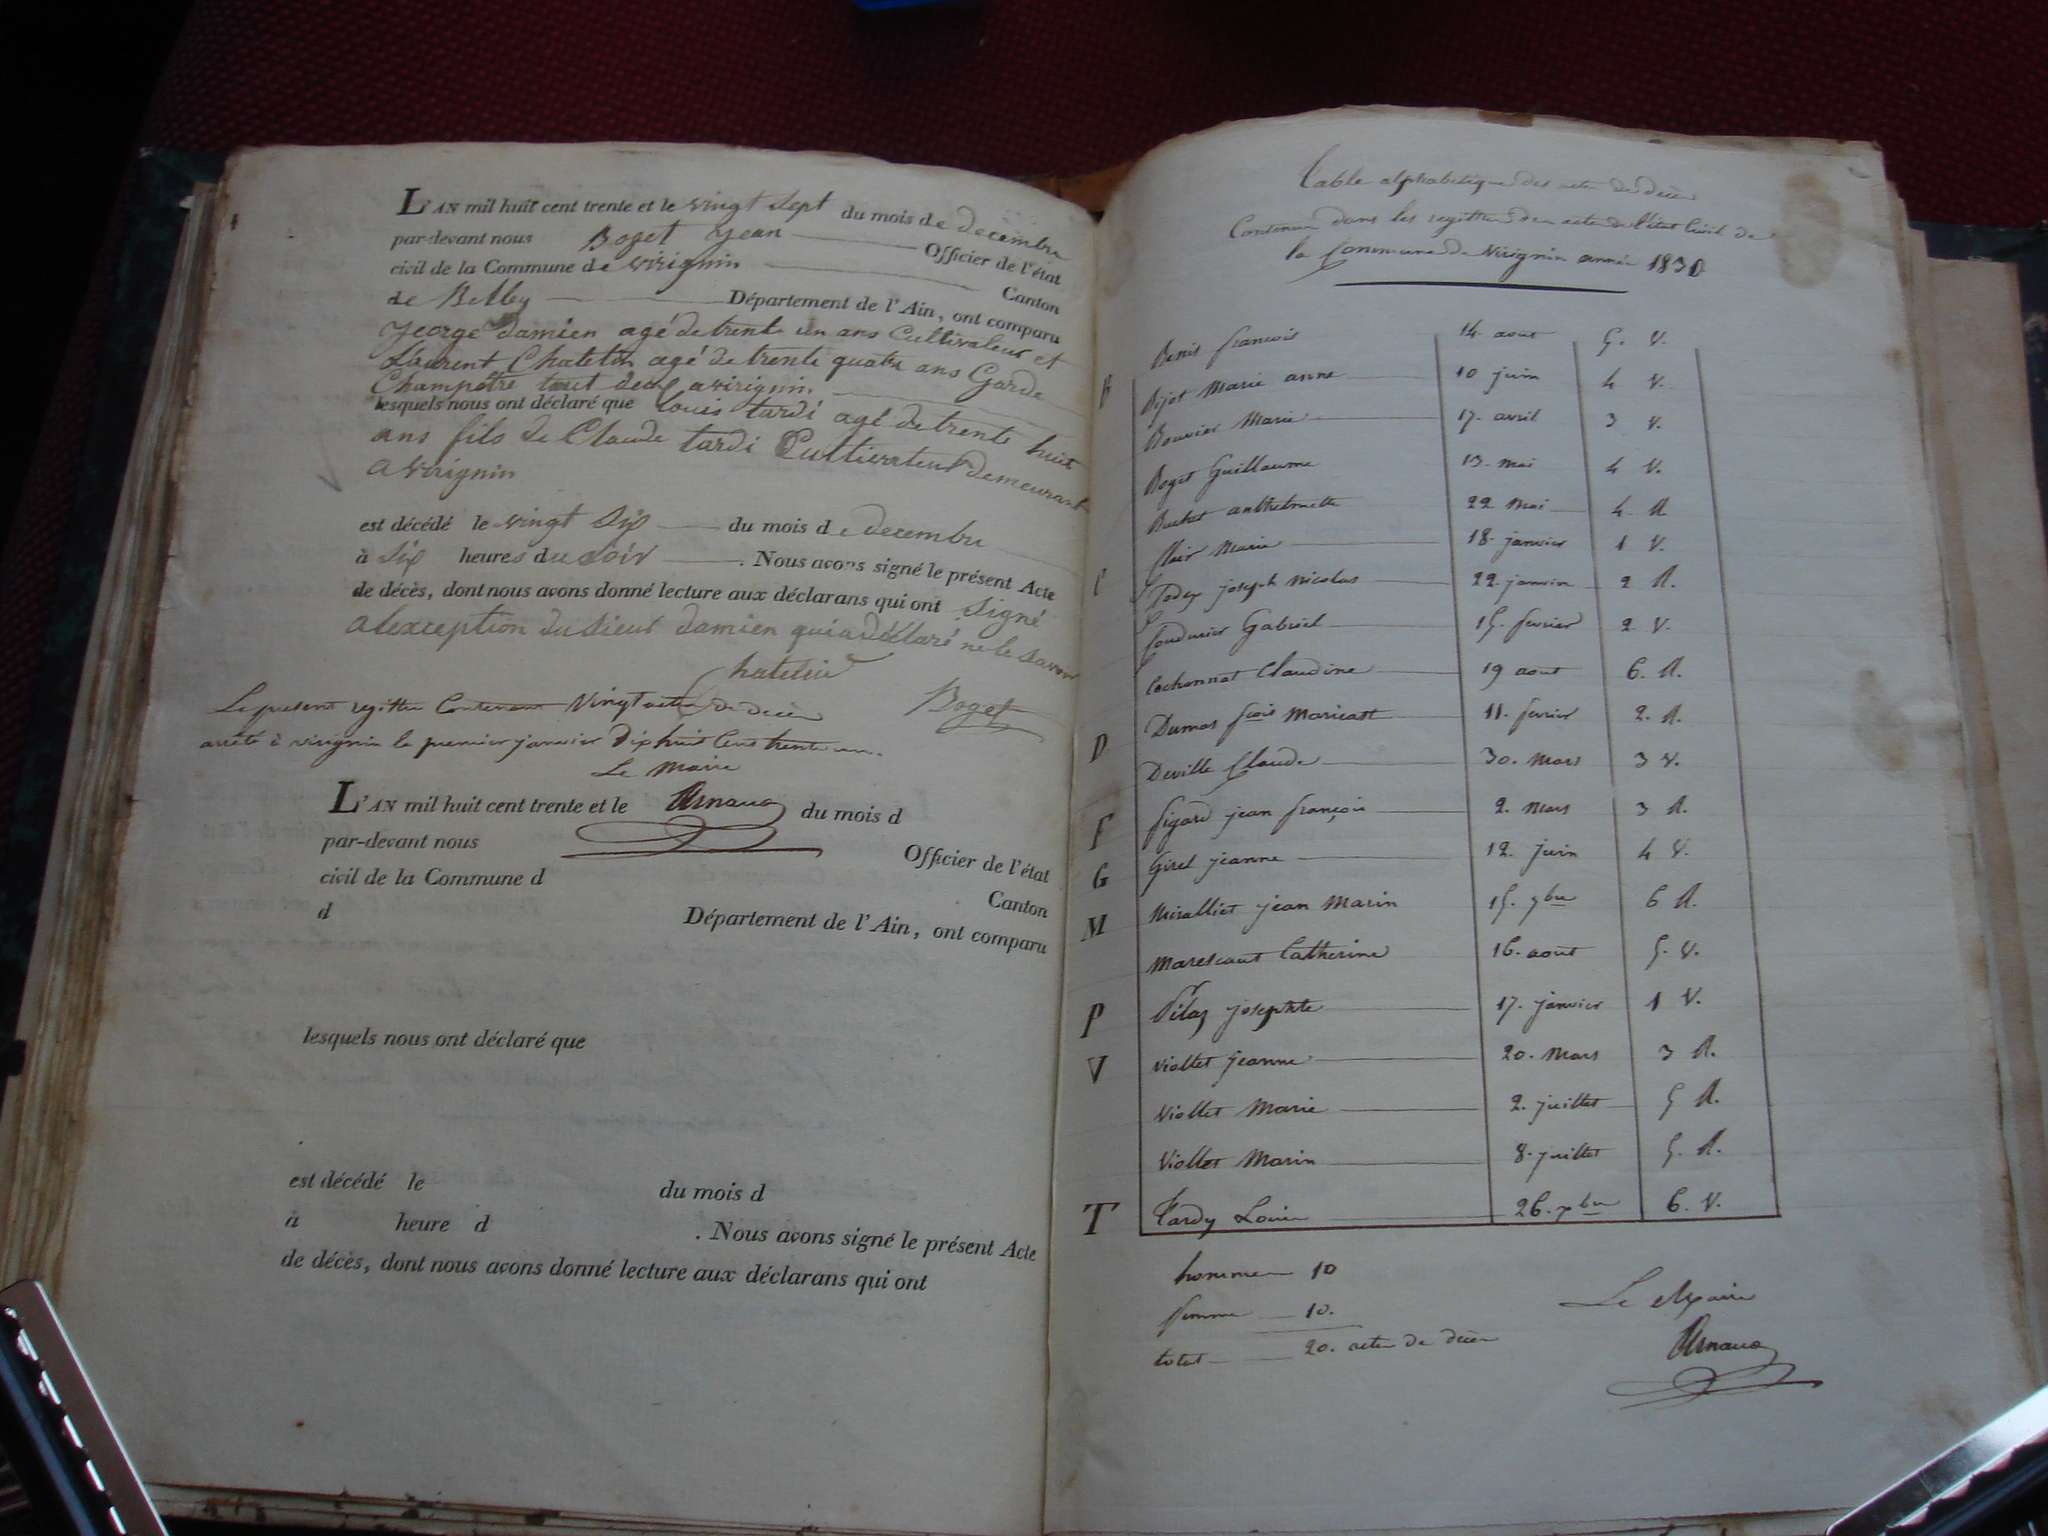 L'AN mil huit cent trente et le vingt sept du mois de decembre
par-devant nous Boget jean Officier de l'état
civil de la Commune de virignin Canton
de Belley Département de l'Ain, ont comparu
george damien agé de trente un ans Cultivateur et
Laurent Chatelin agé de trente quatre ans Garde
Champêtre tout deux a virignin.
lesquels nous ont déclaré que Louis tardi agé de trente huit
ans fils de Claude tardi Cultivateur demeurant
a virignin
est décédé le vingt six du mois de decembre
à six heures du soir . Nous avons signé le présent Acte
de décès, dont nous avons donné lecture aux déclarans qui ont signé
a lexception du sieur damien qui a déclaré ne le savoir
Chatelin
Boget
Le present registre Contenant Vingt actes de décès
arrêté à virignin le premier janvier dix huit Cent trente un.
Le Maire
Arnaud
L'AN mil huit cent trente et le du mois d
par-devant nous Officier de l'état
civil de la Commune d Canton
d Département de l'Ain, ont comparu
lesquels nous ont déclaré que
est décédé le du mois d
à heure d . Nous avons signé le présent Acte
de décès, dont nous avons donné lecture aux déclarans qui ont
Table alphabetique des actes de décès
Contenu dans les registres des actes de l'état Civil de
la Commune de Virignin année 1830
Benit francois 14. aout 5. V.
B Bijot Marie anne 10 juin 4 V.
Bouvier Marie 17. avril 3 V.
Boget Guillaume 13. mai 4 V.
Buchet anthelmette 22 Mai 4 R
C Clair Marie 18. janvier 1 V.
joseph Nicolas 22. janvier 2 R.
Coudurier Gabriel 15. fevrier 2 V.
Cochonnat Claudine 19 aout 6. R.
D Dumas fcois Maricat 11. fevrier 2. R.
Deville Claude 30. Mars 3 V.
F figard jean françois 2. Mars 3 R.
G Girel jeanne 12. juin 4 V.
M Miralliet jean Marin 15. 7bre 6 R.
Marescaut Catherine 16. aout 5. V.
P Pilaz josephte 17. janvier 1 V.
V Viollet jeanne 20. Mars 3 R.
Viollet Marie 2. juillet 5 R.
Viollet Marin 8. juillet 5. R.
T Tardy Louis 26. xbre 6. V.
hommes 10
femme 10.
total 20. actes de décès
Le Maire
Arnaud